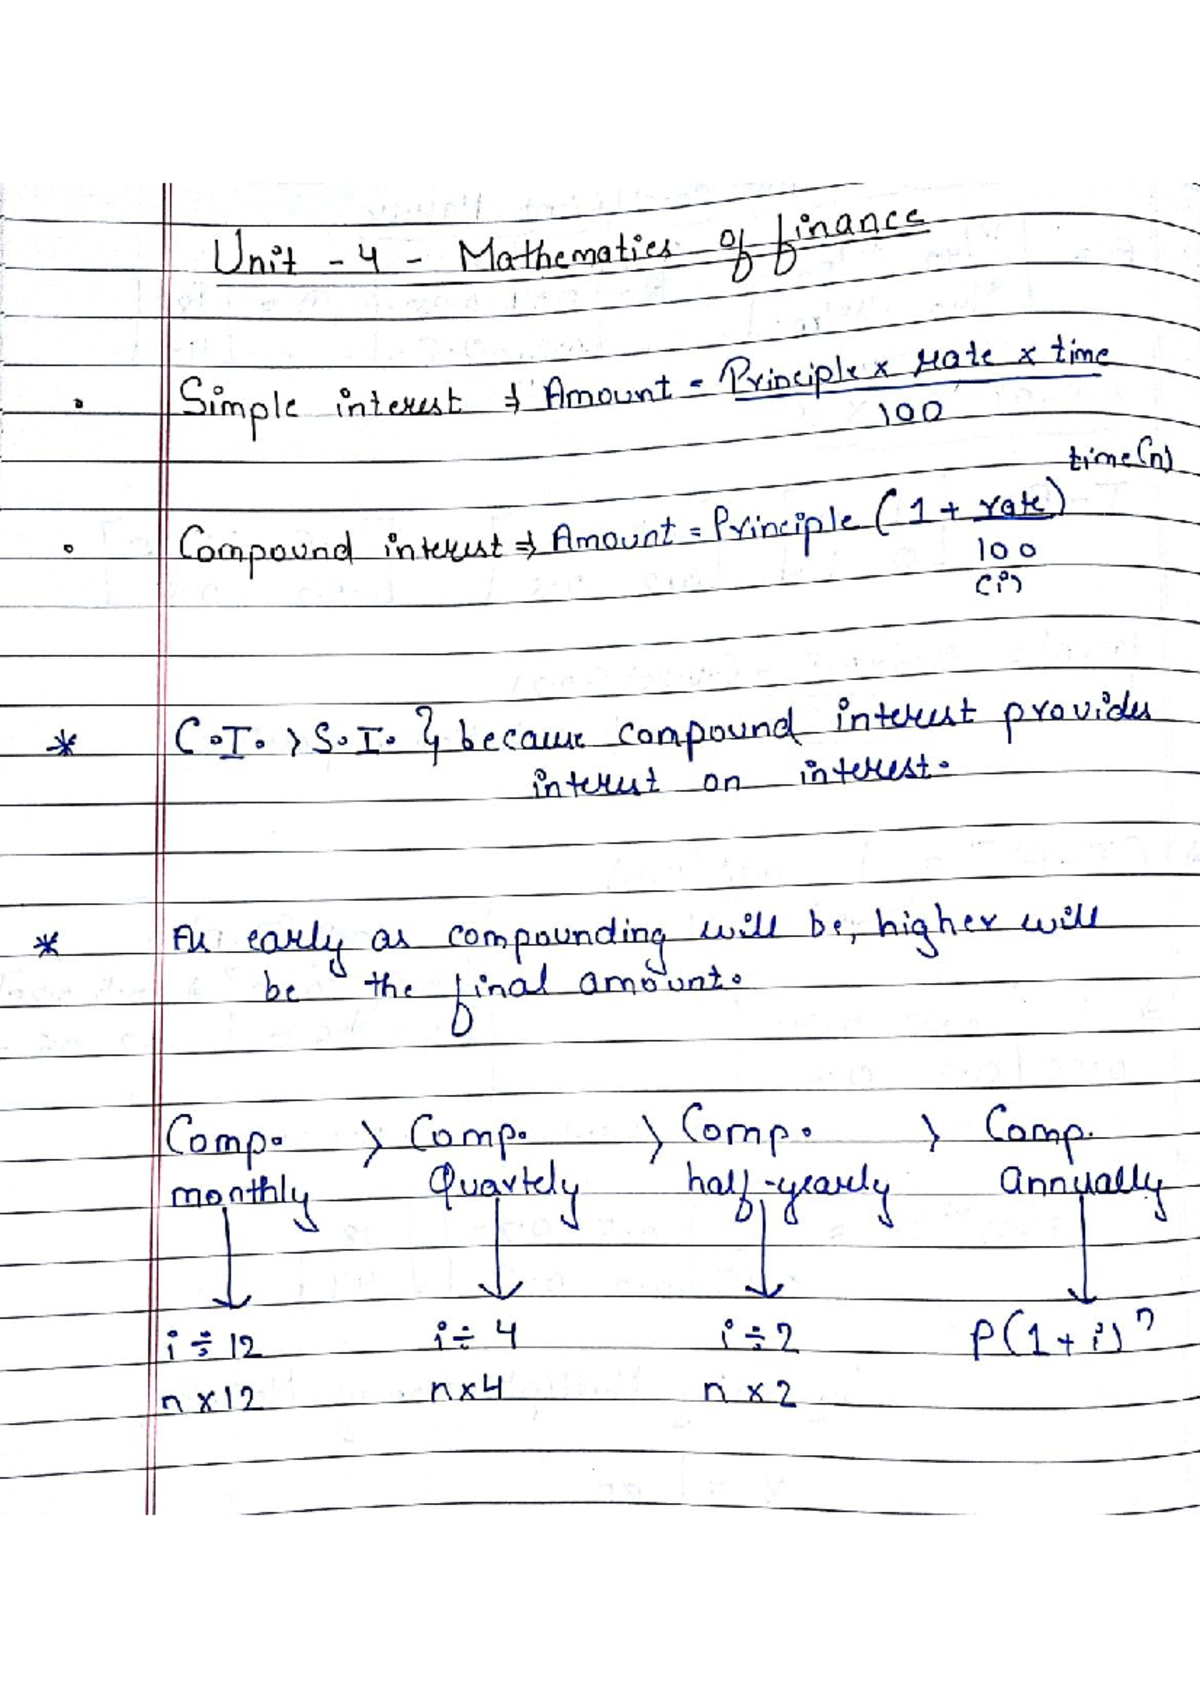 Unit - 4 - Mathematics of finance
Simple interest ⇒ Amount = Principle x rate x time
100
time(n)
Compound interest ⇒ Amount = Principle ( 1 + rate )
100
(i)
* C.I. > S.I. } because compound interest provides
interest on interest.
* As early as compounding will be, higher will
be the final amount.
Comp. > Comp. > Comp. > Comp.
monthly Quartely half-yearly annually
i ÷ 12 i ÷ 4 i ÷ 2 P(1 + i)ⁿ
n x 12 n x 4 n x 2